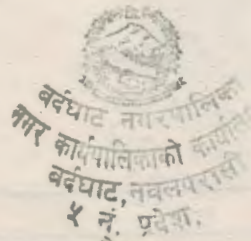 बर्दघाट नगरपालिका
नगर कार्यपालिकाको कार्यालय
बर्दघाट, नवलपरासी
५ नं. प्रदेश,